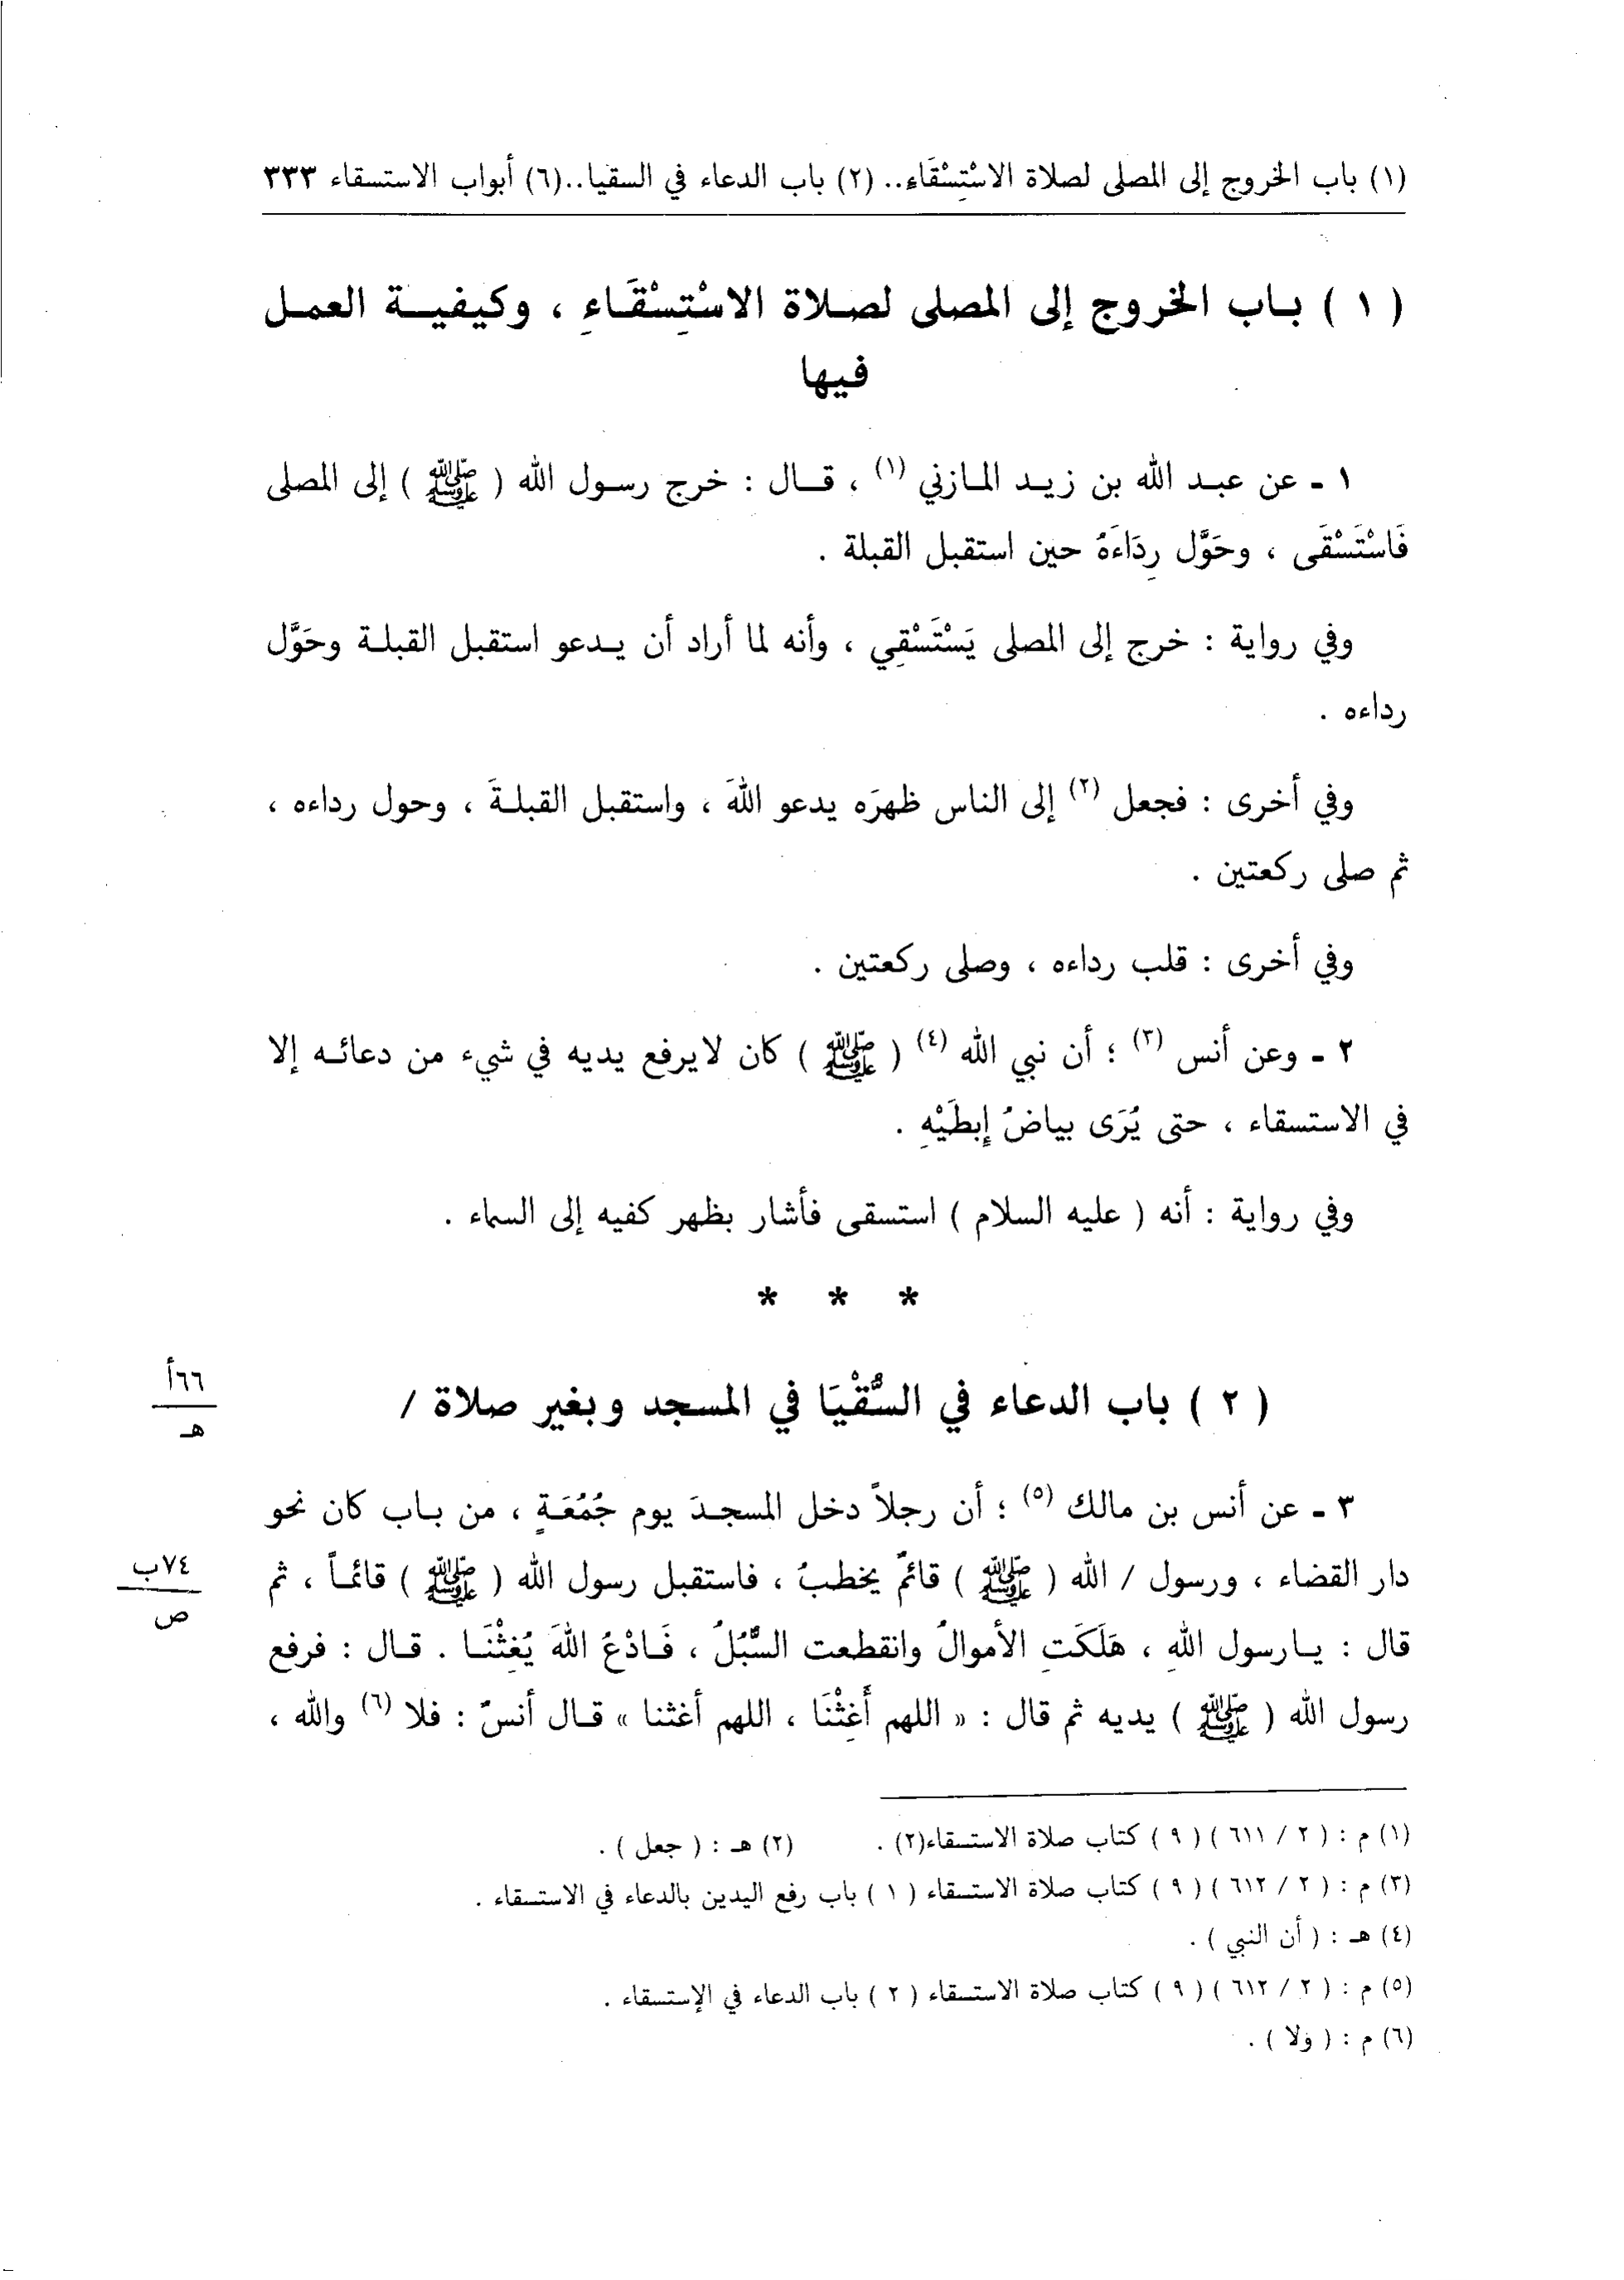 (١) باب الخروج إلى المصلى لصلاة الاسْتِسْقَاءِ.. (٢) باب الدعاء في السقيا..(٦) أبواب الاستسقاء ٣٣٣
( ١ ) بـاب الخروج إلى المصلى لصـلاة الاسْتِسْقَـاءِ ، وكيفيـة العمـل
فيها
١ ـ عن عبـد الله بن زيـد المـازني (١) ، قـال : خرج رسـول الله ( ﷺ ) إلى المصلى
فَاسْتَسْقَى ، وحَوَّل رِدَاءَهُ حين استقبل القبلة .
وفي رواية : خرج إلى المصلى يَسْتَسْقِي ، وأنه لما أراد أن يـدعو استقبل القبلـة وحَوَّل
رداءه .
وفي أخرى : فجعل (٢) إلى الناس ظهرَه يدعو اللهَ ، واستقبل القبلـةَ ، وحول رداءه ،
ثم صلى ركعتين .
وفي أخرى : قلب رداءه ، وصلى ركعتين .
٢ ـ وعن أنس (٣) ؛ أن نبي الله (٤) ( ﷺ ) كان لايرفع يديه في شيء من دعائـه إلا
في الاستسقاء ، حتى يُرَى بياضُ إِبطَيْهِ .
وفي رواية : أنه ( عليه السلام ) استسقى فأشار بظهر كفيه إلى السماء .
* * *
( ٢ ) باب الدعاء في السُّقْيَا في المسجد وبغير صلاة /
٦٦أ
هـ
٣ ـ عن أنس بن مالك (٥) ؛ أن رجلاً دخل المسجـدَ يوم جُمُعَـةٍ ، من بـاب كان نحو
دار القضاء ، ورسول / الله ( ﷺ ) قائمٌ يخطبُ ، فاستقبل رسول الله ( ﷺ ) قائمـاً ، ثم
٧٤ب
ص
قال : يـارسول اللهِ ، هَلَكَتِ الأموالُ وانقطعت السُّبُلُ ، فَـادْعُ اللهَ يُغِثْنَـا . قـال : فرفع
رسول الله ( ﷺ ) يديه ثم قال : « اللهم أَغِثْنَا ، اللهم أغثنا » قـال أنسٌ : فلا (٦) والله ،
(١) م : ( ٢ / ٦١١ ) ( ٩ ) كتاب صلاة الاستسقاء(٢) . (٢) هـ : ( جعل ) .
(٣) م : ( ٢ / ٦١٢ ) ( ٩ ) كتاب صلاة الاستسقاء ( ١ ) باب رفع اليدين بالدعاء في الاستسقاء .
(٤) هـ : ( أن النبي ) .
(٥) م : ( ٢ / ٦١٢ ) ( ٩ ) كتاب صلاة الاستسقاء ( ٢ ) باب الدعاء في الإستسقاء .
(٦) م : ( ولا ) .